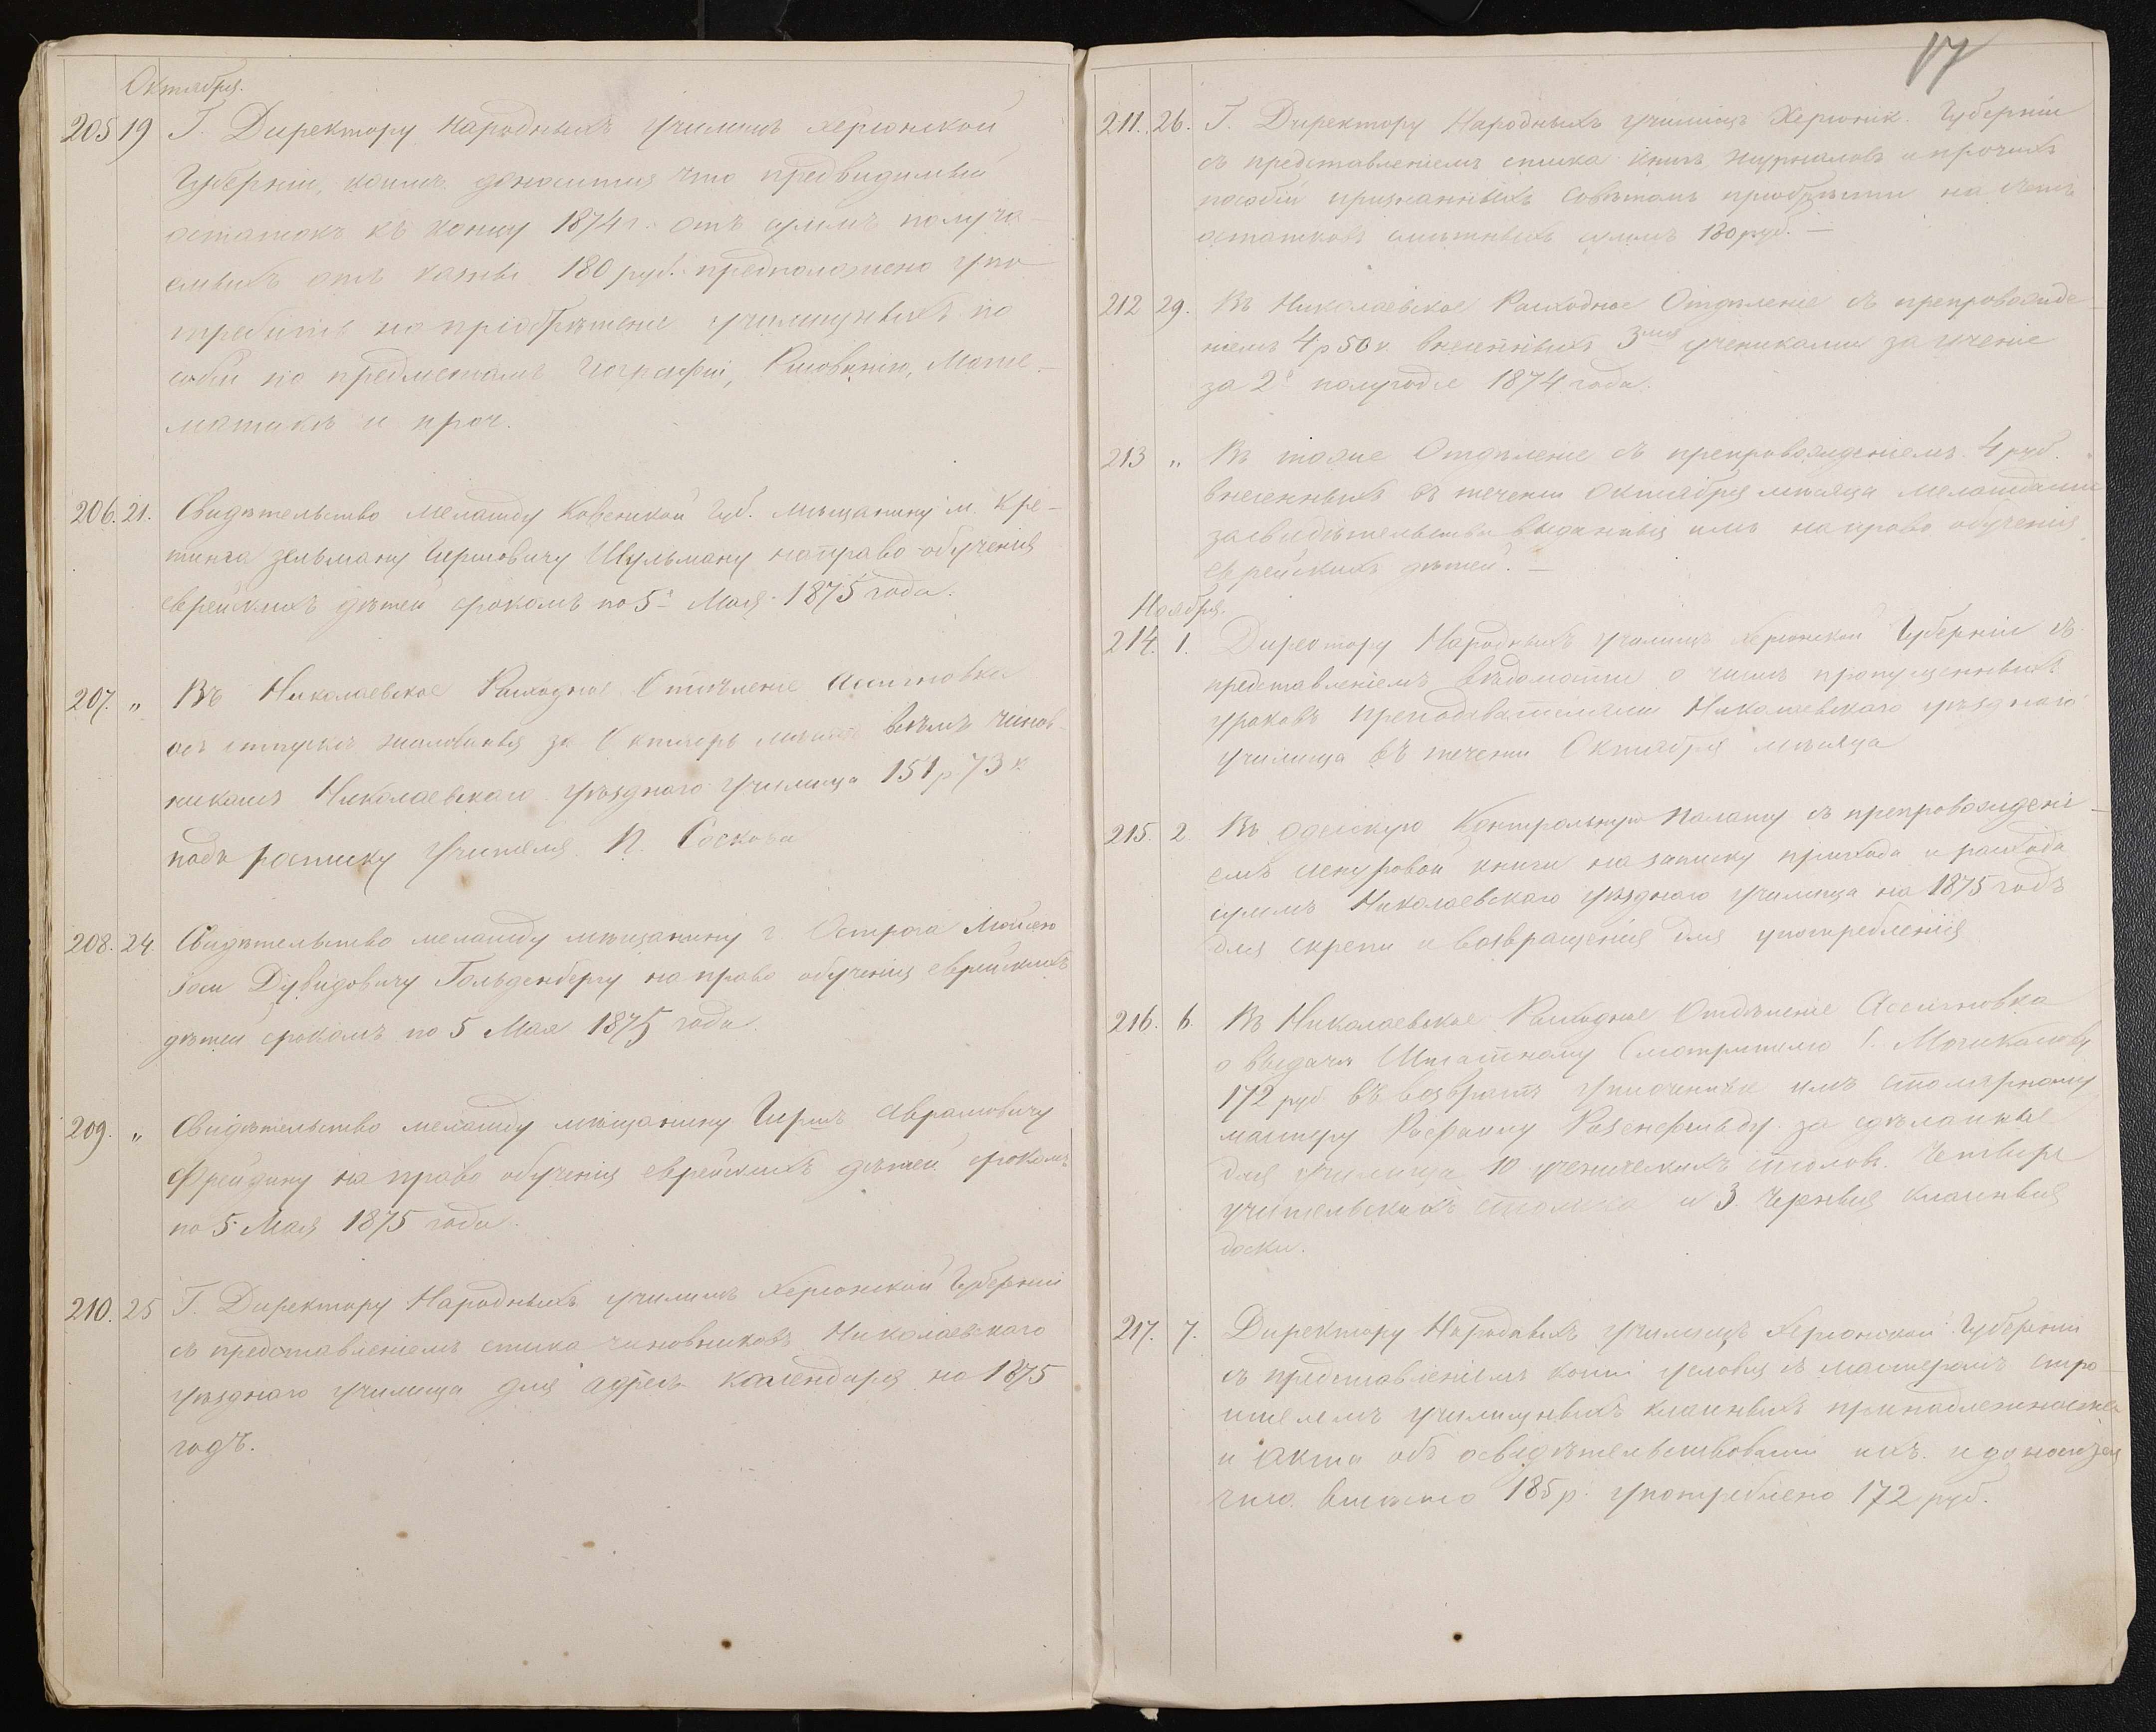 Октября.
205 19 Г. Директору народныхъ училищъ Херсонской
Губерніи, коимъ доносится что предвидимый
остатокъ къ концу 1874 г. отъ суммъ получа-
емыхъ отъ казны 180 руб. предположено упо-
требить на пріобрѣтеніе училищныхъ по
собій по предметамъ Географіи, Рисованію, Мате-
матикѣ и проч.
206. 21. Свидѣтельство меламду Ковенской Губ. мѣщанину м. Кре-
тинга Зельману Гиршовичу Шульману на право обученія
еврейскихъ дѣтей срокомъ по 5е Мая 1875 года.
207. „ Въ Николаевское Расходное Отдѣленіе Ассигновка
объ отпускѣ жалованья за Октябрь мѣсяцъ всѣмъ чинов-
никамъ Николаевскаго уѣзднаго училища 151 р 73 к
подъ росписку Учителя П.
208. 24 Свидѣтельство меламду мѣщанину г Острога
Дувидовичу Гольденбергу на право обученія еврейскихъ
дѣтей срокомъ по 5 Мая 1875 года.
209. „ Свидѣтельство меламду мѣщанину Гиршъ Аврамовичу
Фрейдину на право обученія еврейскихъ дѣтей срокомъ
по 5 Мая 1875 года.
210. 25 Г. Директору Народныхъ училищъ Херсонской Губерніи
съ представленіемъ списка чиновниковъ Николаевскаго
уѣзднаго училища для адресъ календаря на 1875
годъ.
17
211. 26. Г. Директору Народныхъ училищъ Херсонск. Губерніи
съ представленіемъ списка книгъ журналовъ и прочихъ
пособій признанныхъ Совѣтомъ пріобрѣсти на счетъ
остатковъ смѣтныхъ суммъ 180 руб. —
212 29. Въ Николаевское Расходное Отдѣленіе съ препровожде-
ніемъ 4 р 50 к. внесенныхъ 3мя учениками за ученіе
за 2е полугодіе 1874 года.
213 „ Въ тоже Отдѣленіе съ препровожденіемъ 4 руб.
внесенныхъ въ теченіи Октября мѣсяца меламдами
за свидѣтельства выданныя имъ на право обученія
еврейскихъ дѣтей. —
Ноября.
214. 1. Директору Народныхъ училищъ Херсонской Губерніи съ
представленіемъ вѣдомости о числѣ пропущенныхъ
уроковъ преподавателями Николаевскаго уѣзднаго
училища въ теченіи Октября мѣсяца
215. 2 Въ Одесскую Контрольную Палату съ препровожденi-
емъ шнуровой книги на записку прихода и расхода
суммъ Николаевскаго уѣзднаго училища на 1875 годъ
для скрепи и возвращенія для употребленія
216. 6. Въ Николаевское Расходное Отдѣленіе Ассигновка
о выдачѣ Штатному Смотрителю Г.
172 руб въ возвратъ уплоченные имъ столярному
мастеру Розенфельду за сдѣланные
для училища 10 ученическихъ столовъ. Четыре
учительскихъ столика и 3 черныя классныя
доски.
217. 7. Директору Народныхъ училищъ Херсонской Губерніи
съ представленіемъ копіи условія съ мастеромъ стро-
ителемъ училищныхъ классныхъ принадлежностей
и Акта объ освидѣтельствованіи ихъ и доносится
что вмѣсто 185 р. употреблено 172 руб.